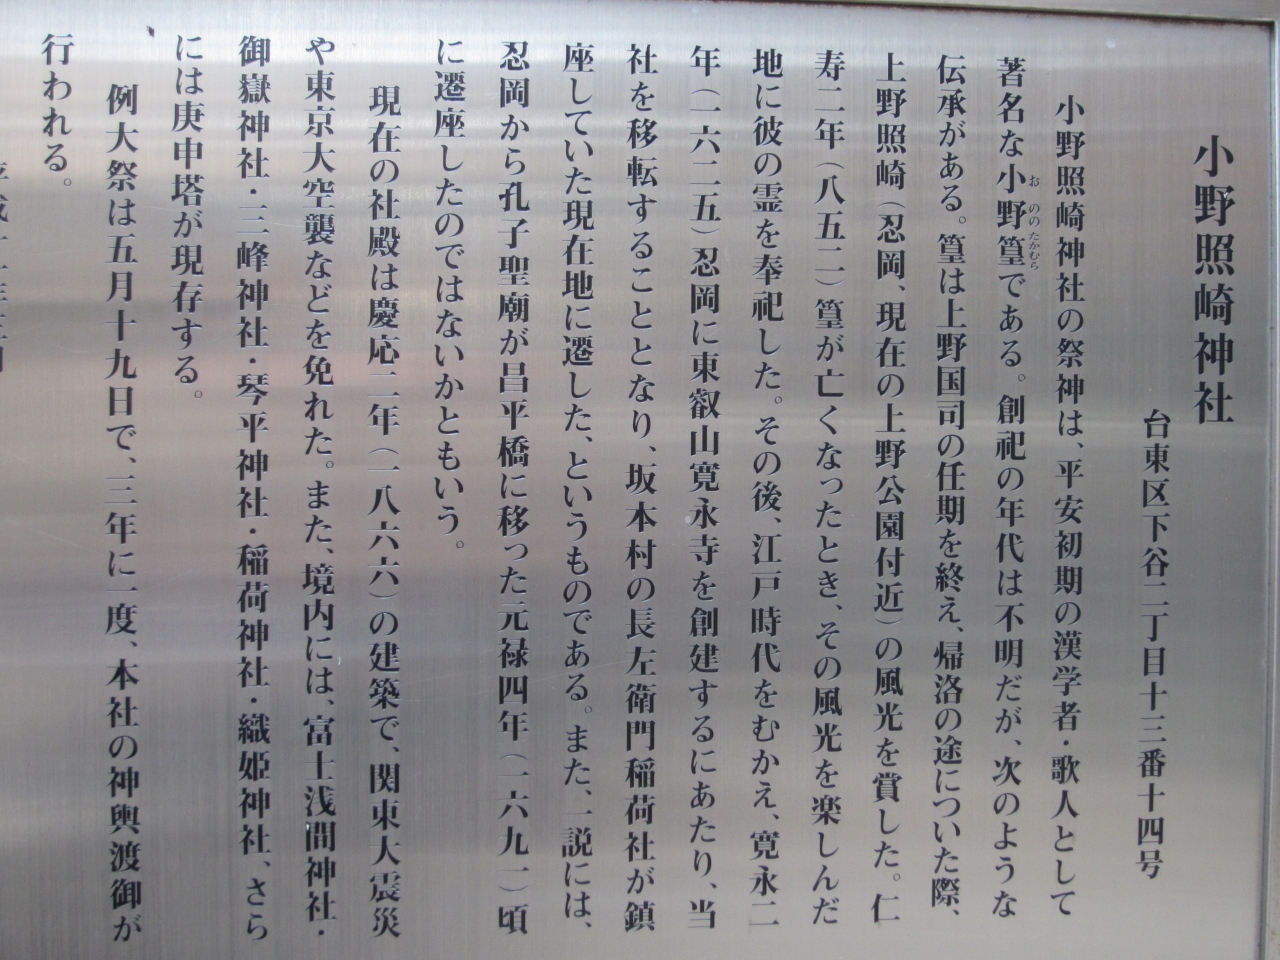 小野照崎神社
台東区下谷二丁目十三番十四号
小野照崎神社の祭神は、平安初期の漢学者・歌人として
著名な小野篁である。創祀の年代は不明だが、次のような
おののたかむら
伝承がある。篁は上野国司の任期を終え、帰洛の途についた際、
上野照崎（忍岡、現在の上野公園付近）の風光を賞した。仁
寿二年（八五二）篁が亡くなったとき、その風光を楽しんだ
地に彼の霊を奉祀した。その後、江戸時代をむかえ、寛永二
年（一六二五）忍岡に東叡山寛永寺を創建するにあたり、当
社を移転することとなり、坂本村の長左衛門稲荷社が鎮
座していた現在地に遷した、というものである。また、一説には、
忍岡から孔子聖廟が昌平橋に移った元禄四年（一六九一）頃
に遷座したのではないかともいう。
現在の社殿は慶応二年（一八六六）の建築で、関東大震災
や東京大空襲などを免れた。また、境内には、富士浅間神社・
御嶽神社・三峰神社・琴平神社・稲荷神社・織姫神社、さら
には庚申塔が現存する。
例大祭は五月十九日で、三年に一度、本社の神輿渡御が
行われる。